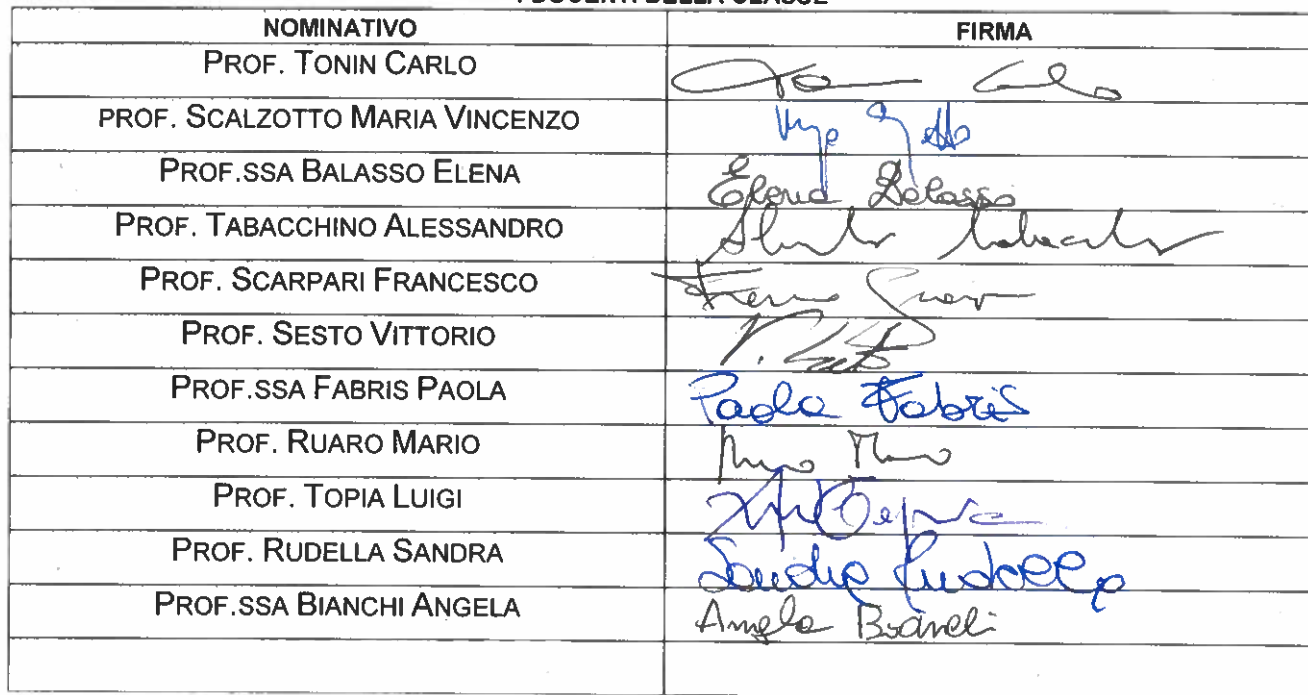 I DOCENTI DELLA CLASSE
NOMINATIVO FIRMA
PROF. TONIN CARLO
PROF. SCALZOTTO MARIA VINCENZO
PROF.SSA BALASSO ELENA Elena Balasso
PROF. TABACCHINO ALESSANDRO
PROF. SCARPARI FRANCESCO
PROF. SESTO VITTORIO V. Sesto
PROF.SSA FABRIS PAOLA Paola Fabris
PROF. RUARO MARIO
PROF. TOPIA LUIGI
PROF. RUDELLA SANDRA Sandra Rudella
PROF.SSA BIANCHI ANGELA Angela Bianchi